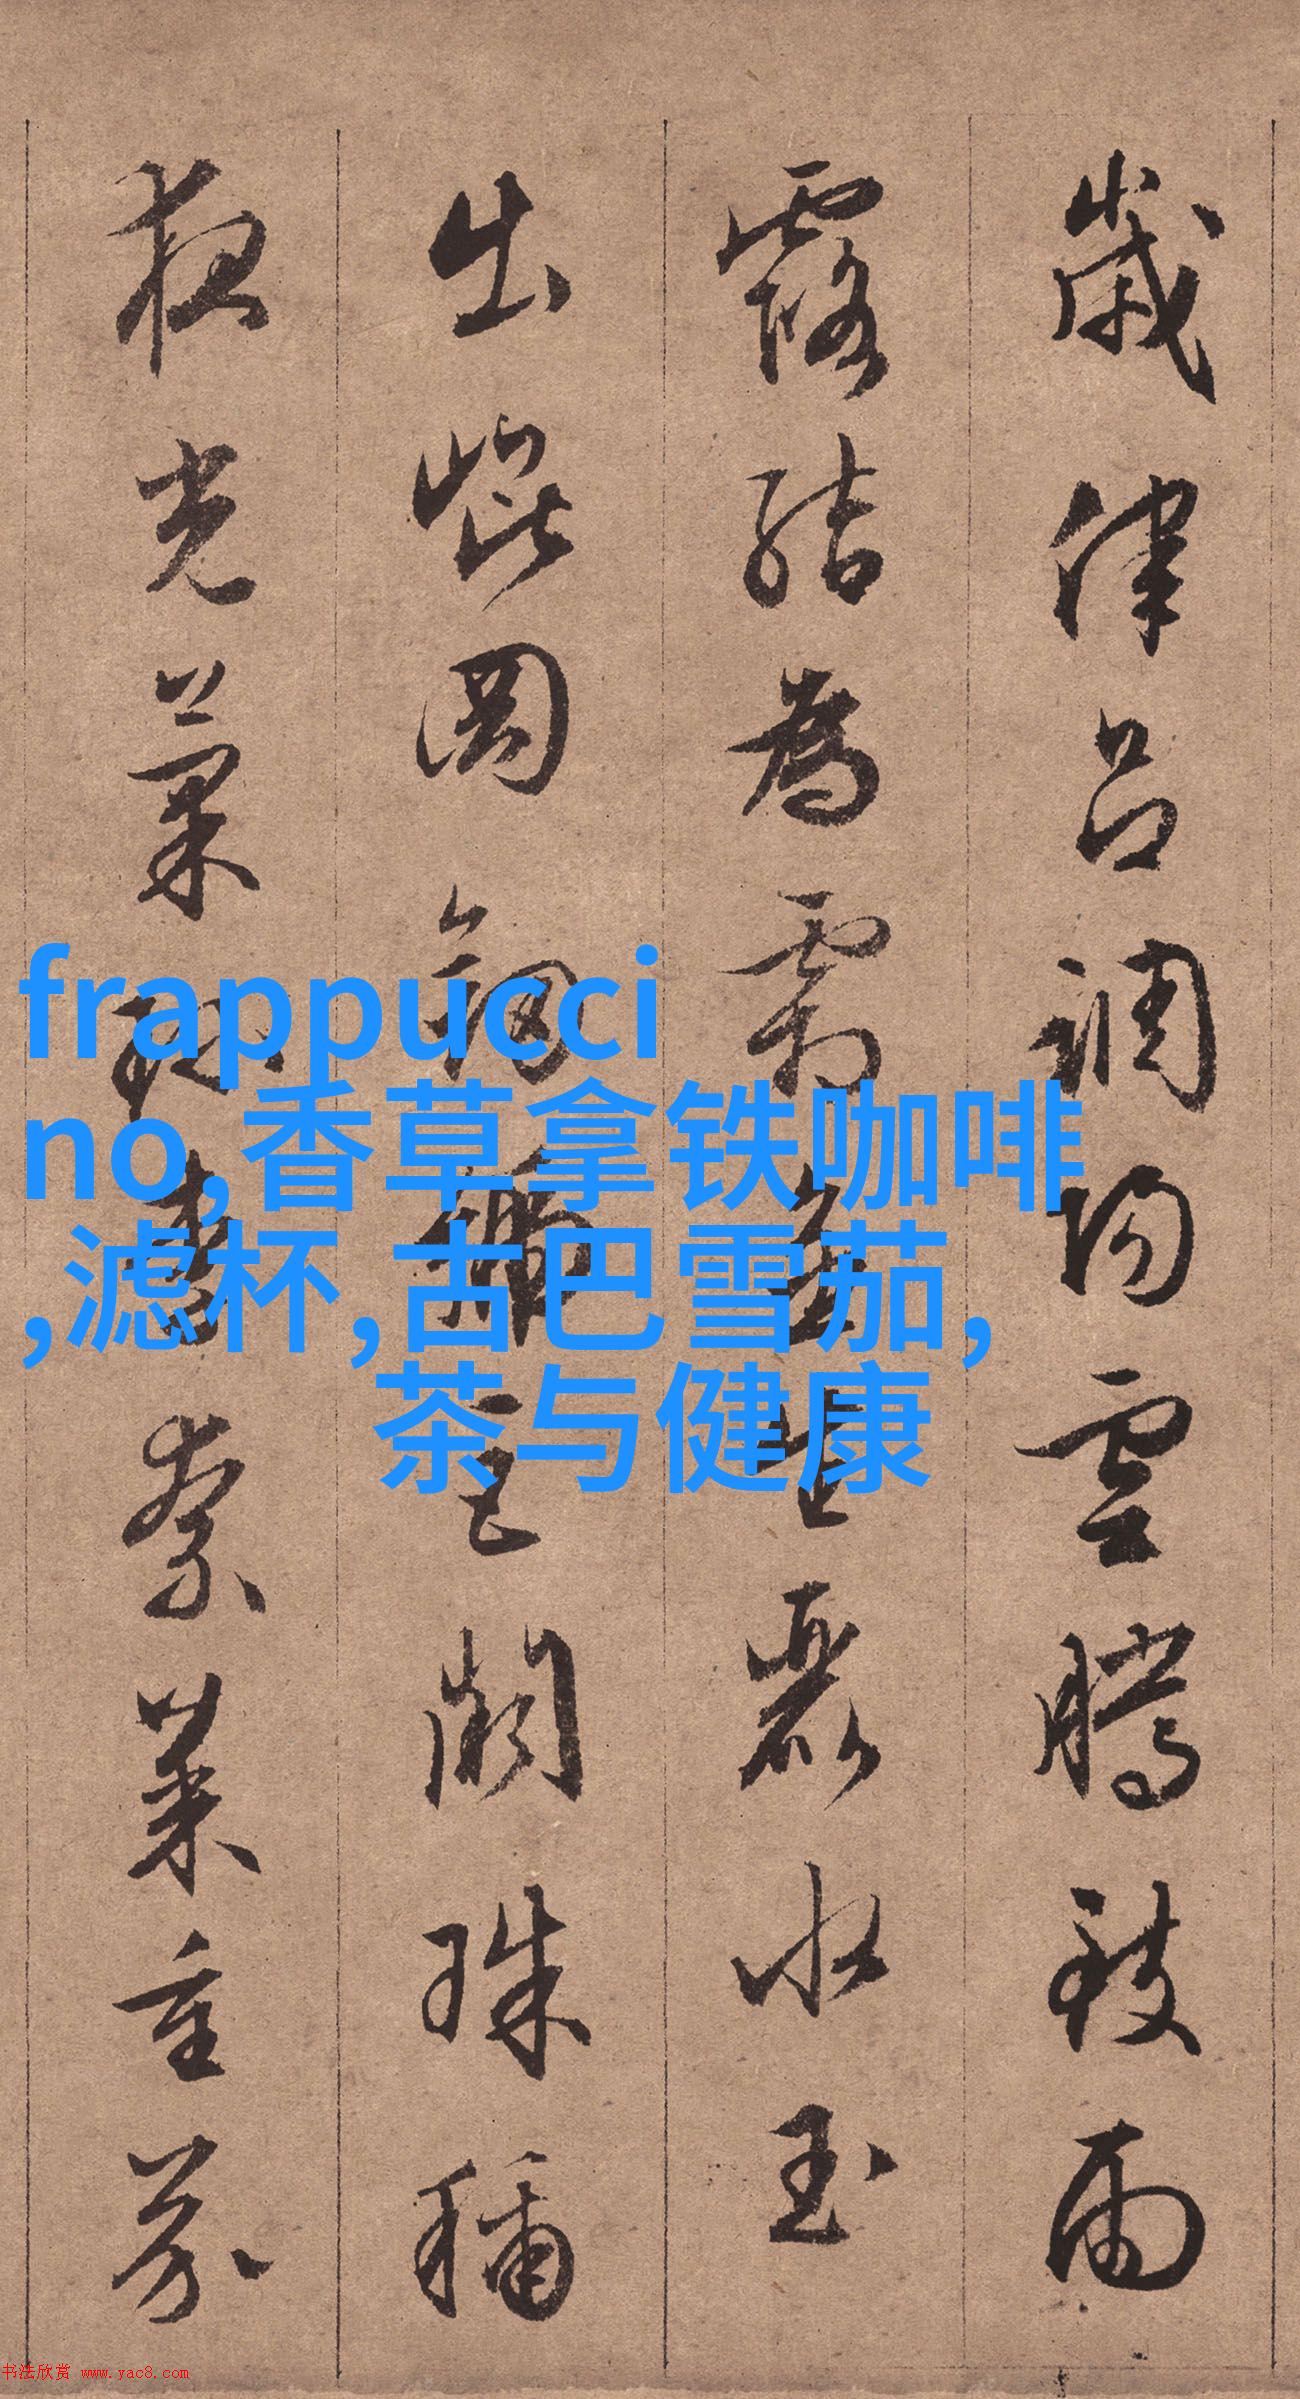 歲律呂調陽雲騰致雨
露結為霜金生麗水玉
出崐岡劍號巨闕珠稱
夜光菓珍李柰菜重芥
frappucci
no,香草拿铁咖啡
,滤杯,古巴雪茄,
茶与健康
书法欣赏 www.yac8.com